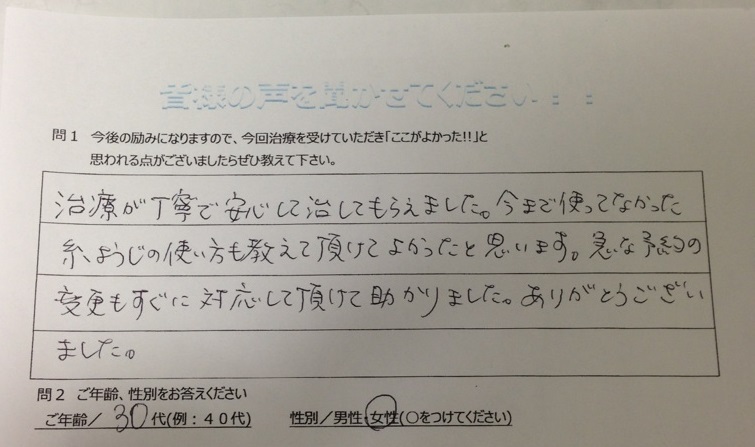 皆様の声を聞かせてください！！！
問１ 今後の励みになりますので、今回治療を受けていただき「ここがよかった!!」と
思われる点がございましたらぜひ教えて下さい。
治療が丁寧で安心して治してもらえました。今まで使ってなかった
糸ようじの使い方も教えて頂けてよかったと思います。急な予約の
変更もすぐに対応して頂けて助かりました。ありがとうござい
ました。
問２ ご年齢、性別をお答えください
ご年齢／ 30 代(例：４０代) 性別／男性・女性(〇をつけてください)